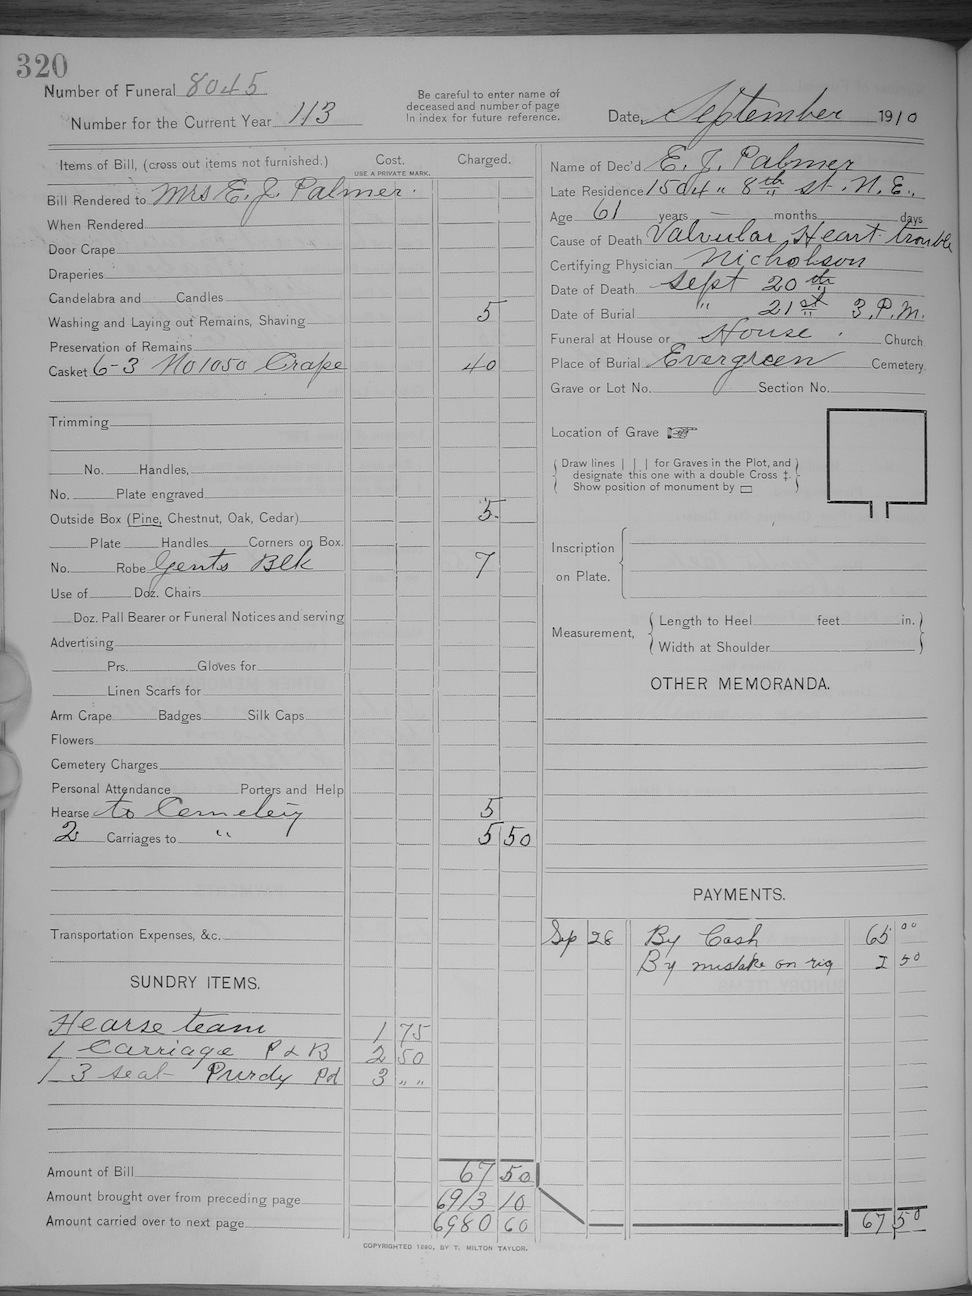 320
Number of Funeral 8045
Number for the Current Year 113
Be careful to enter name of
deceased and number of page
In index for future reference.
Date, September 1910
Items of Bill, (cross out items not furnished.) Cost. Charged.
USE A PRIVATE MARK.
Bill Rendered to Mrs E. J. Palmer.
When Rendered
Door Crape
Draperies
Candelabra and Candles
Washing and Laying out Remains, Shaving 5
Preservation of Remains
Casket 6-3 No 1050 Crape 40
Trimming
No. Handles,
No. Plate engraved
Outside Box (Pine, Chestnut, Oak, Cedar) 5.
Plate Handles Corners on Box.
No. Robe Gents Blk 7
Use of Doz. Chairs
Doz. Pall Bearer or Funeral Notices and serving
Advertising
Prs. Gloves for
Linen Scarfs for
Arm Crape Badges Silk Caps
Flowers
Cemetery Charges
Personal Attendance Porters and Help
Hearse to Cemetery 5
2 Carriages to " 5 50
Transportation Expenses, &c.
SUNDRY ITEMS.
Hearse team 1 75
1 Carriage P & B 2 50
1 3 seat Purdy Pd 3 " "
Amount of Bill 67 50
Amount brought over from preceding page 6913 10
Amount carried over to next page 6980 60
Name of Dec'd E. J. Palmer
Late Residence 1504 " 8th st. N. E.,
Age 61 years — months days
Cause of Death Valvular Heart trouble
Certifying Physician Nicholson
Date of Death Sept 20th
Date of Burial " 21st 3, P.M.
Funeral at House or House. Church
Place of Burial Evergreen Cemetery.
Grave or Lot No. Section No.
Location of Grave
Draw lines | | | for Graves in the Plot, and
designate this one with a double Cross ‡.
Show position of monument by ▭
Inscription
on Plate.
Measurement, Length to Heel feet in.
Width at Shoulder
OTHER MEMORANDA.
PAYMENTS.
Sep 28 By Cash 65 00
By mistake on rig 2 50
67 50
COPYRIGHTED 1890, BY T. MILTON TAYLOR.